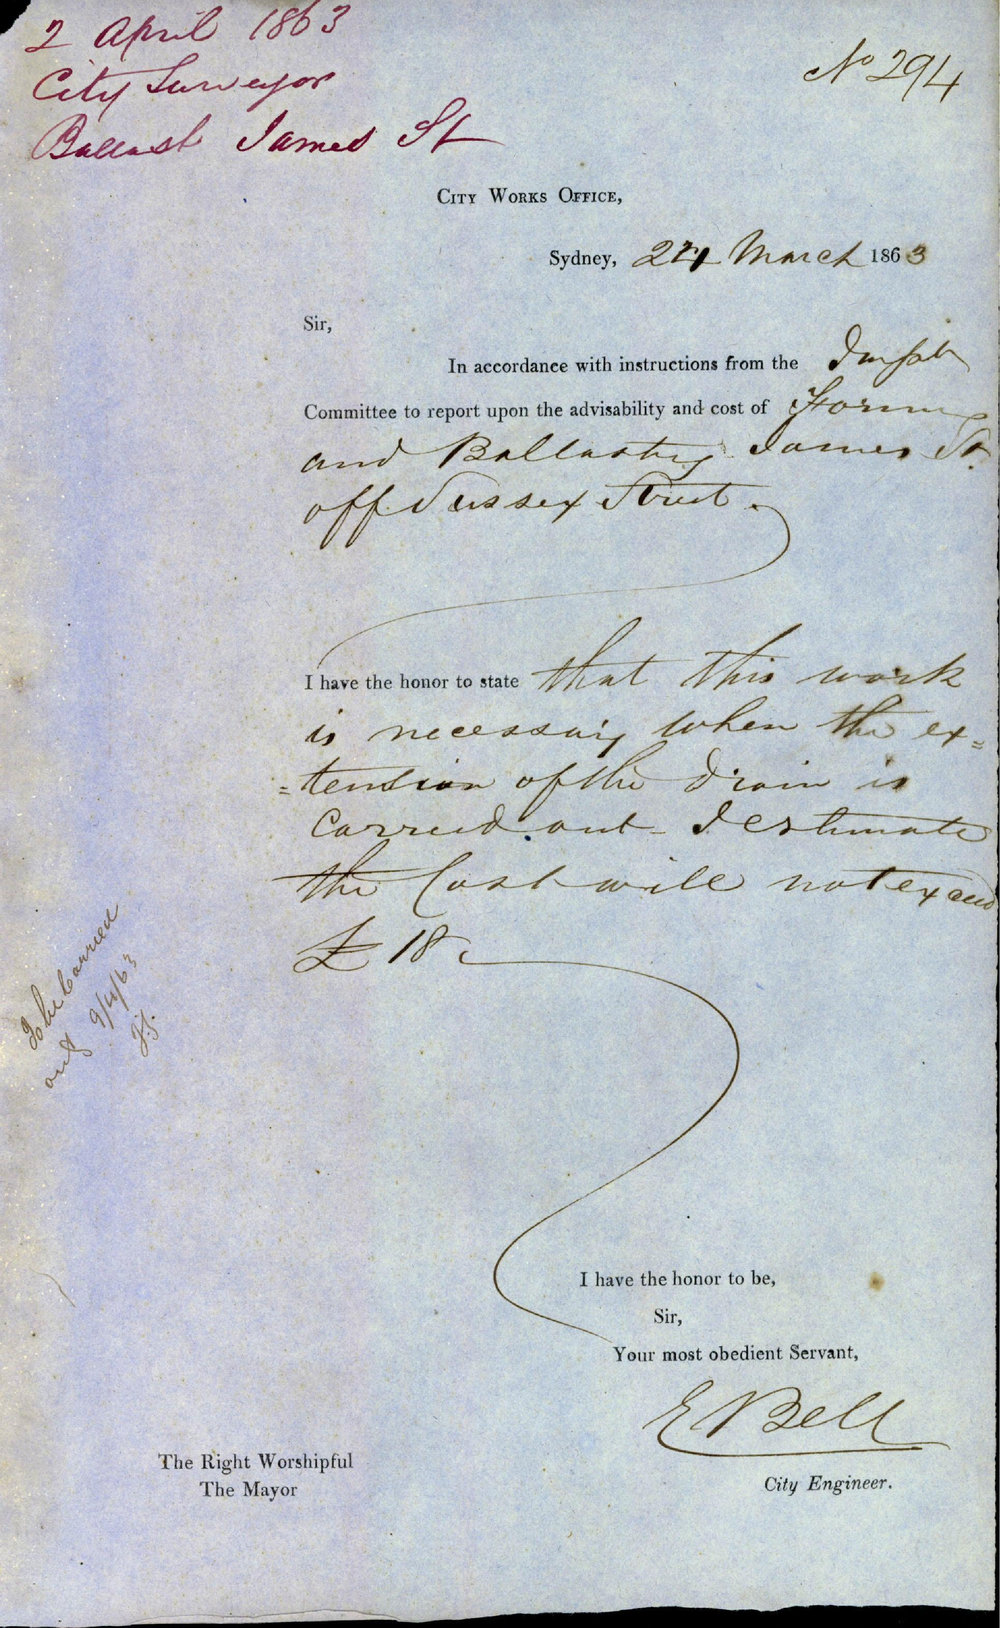 2 April 1863
City Surveyor
Ballast James St
No 294
City Works Office,
Sydney, 24 March 1863
Sir,
In accordance with instructions from the
Committee to report upon the advisability and cost of Forming
and Ballasting James St.
off Sussex Street.
I have the honor to state that this work
is necessary when the ex=
=tension of the drain is
Carried out I estimate
the Cost will not exceed
£18
To be Carried
out 9/4/63
I have the honor to be,
Sir,
Your most obedient Servant,
E Bell
City Engineer.
The Right Worshipful
The Mayor